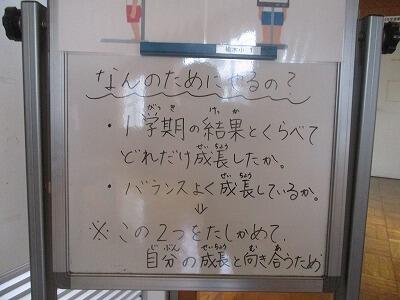 なんのためにやるの？
・1学期の結果とくらべて
どれだけ成長したか。
・バランスよく成長しているか。
⇓
※この2つをたしかめて、
自分の成長と向き合うため